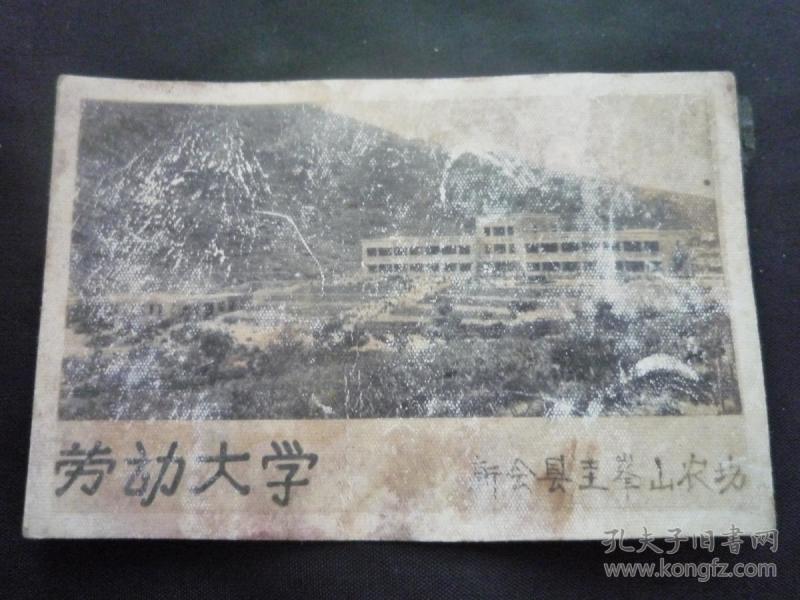 劳动大学
新会县圭峯山农场
孔夫子旧书网
www.kongfz.com